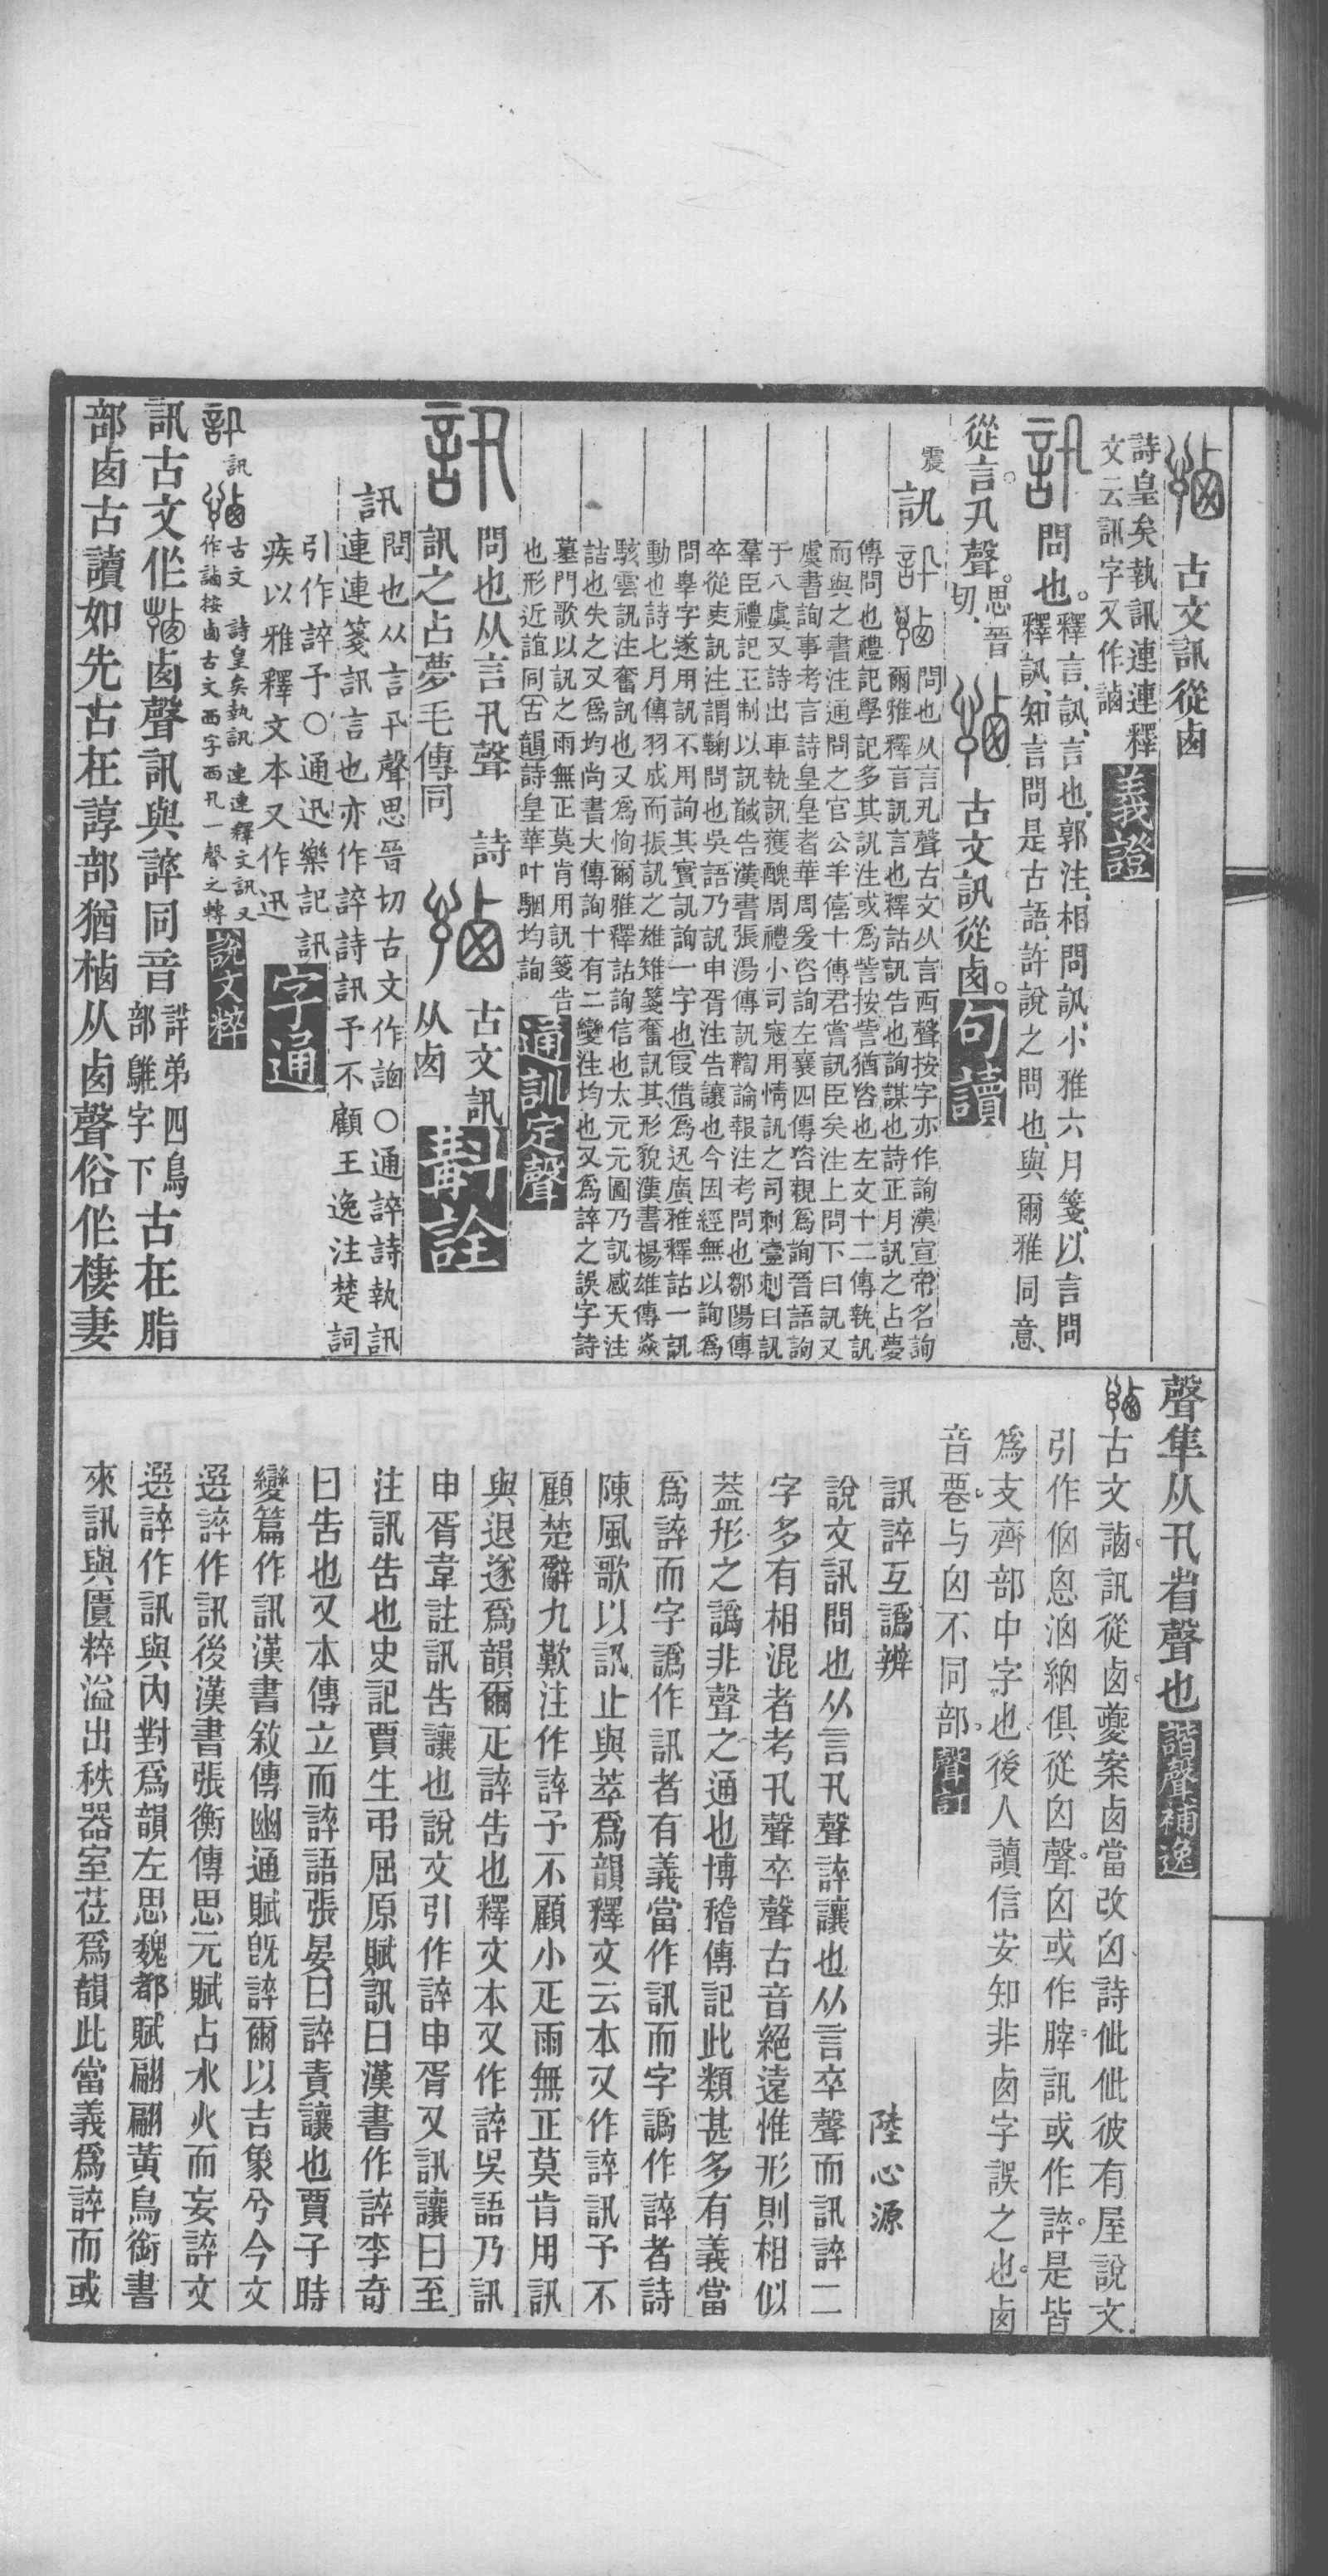 古文訊從㔽
詩皇矣執訊連連釋
文云訊字又作䛥
義證
問也。釋言、訊、言也、郭注、相問訊、小雅六月箋、以言問
釋訊、知言問是古語、許說之問也、與爾雅同意、
從言。卂聲。思晉
切、
古文訊從㔽。
句讀
震
訊
問也从言卂聲古文从言西聲按字亦作詢漢宣帝名詢
爾雅釋言訊言也釋詁訊告也詢謀也詩正月訊之占夢
傳問也禮記學記多其訊注或爲訾按訾猶咨也左文十二傳執訊
而與之書注通問之官公羊僖十傳君嘗訊臣矣注上問下曰訊又
虞書詢事考言詩皇皇者華周爰咨詢左襄四傳咨親爲詢晉語詢
于八虞又詩出車執訊獲醜周禮小司寇用情訊之司刺壹刺曰訊
羣臣禮記王制以訊馘告漢書張湯傳訊鞫論報注考問也鄒陽傳
卒從吏訊注謂鞫問也吳語乃訊申胥注告讓也今因經無以詢爲
問辠字遂用訊不用詢其實訊詢一字也叚借爲迅廣雅釋詁一訊
動也詩七月傳羽成而振訊之雄雉箋奮訊其形貌漢書楊雄傳猋
駭雲訊注奮訊也又爲恂爾雅釋詁詢信也太元元圖乃訊感天注
詰也失之又爲均尚書大傳詢十有二變注均也又爲誶之誤字詩
墓門歌以訊之雨無正莫肯用訊箋告
也形近誼同古韻詩皇華叶駰均詢
通訓定聲
訊
問也从言卂聲　詩
訊之占夢毛傳同
古文訊
从㔽
斠詮
訊
問也从言卂聲思晉切古文作䛥○通誶詩執訊
連連箋訊言也亦作誶詩訊予不顧王逸注楚詞
引作誶予○通迅樂記訊
疾以雅釋文本又作迅
字通
訊
古文　詩皇矣執訊連連釋文訊又
作䛥按㔽古文西字西卂一聲之轉
說文粹
訊古文作㔽聲訊與誶同音
詳弟四鳥
部雖字下
古在脂
部㔽古讀如先古在諄部猶㮰从㔽聲俗作棲妻
聲隼从卂省聲也
諧聲補逸
古文䛥訊從㔽夔案㔽當改囟詩佌佌彼有屋說文
引作㑄恖洶納俱從囟聲囟或作脺訊或作誶是皆
爲支齊部中字也後人讀信安知非㔽字誤之也㔽
音䙴与囟不同部
聲訂
訊誶互譌辨
陸心源
說文訊問也从言卂聲誶讓也从言卒聲而訊誶二
字多有相混者考卂聲卒聲古音絕遠惟形則相似
蓋形之譌非聲之通也博稽傳記此類甚多有義當
爲誶而字譌作訊者有義當作訊而字譌作誶者詩
陳風歌以訊止與萃爲韻釋文云本又作誶訊予不
顧楚辭九歎注作誶予不顧小疋雨無正莫肯用訊
與退遂爲韻爾疋誶告也釋文本又作誶吳語乃訊
申胥韋註訊告讓也說文引作誶申胥又訊讓曰至
注訊告也史記賈生弔屈原賦訊曰漢書作誶李奇
曰告也又本傳立而誶語張晏曰誶責讓也賈子時
變篇作訊漢書敘傳幽通賦旣誶爾以吉象兮今文
選誶作訊後漢書張衡傳思元賦占水火而妄誶文
選誶作訊與內對爲韻左思魏都賦翩翩黃鳥銜書
來訊與匱粹溢出秩器室莅爲韻此當義爲誶而或